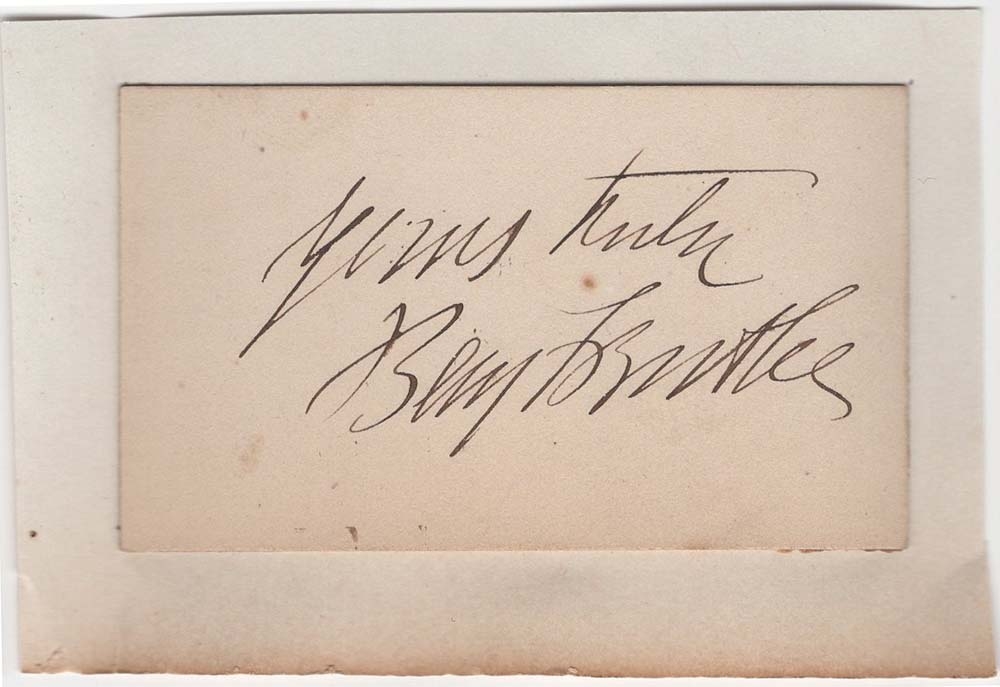 Yours truly
Benj F Butler